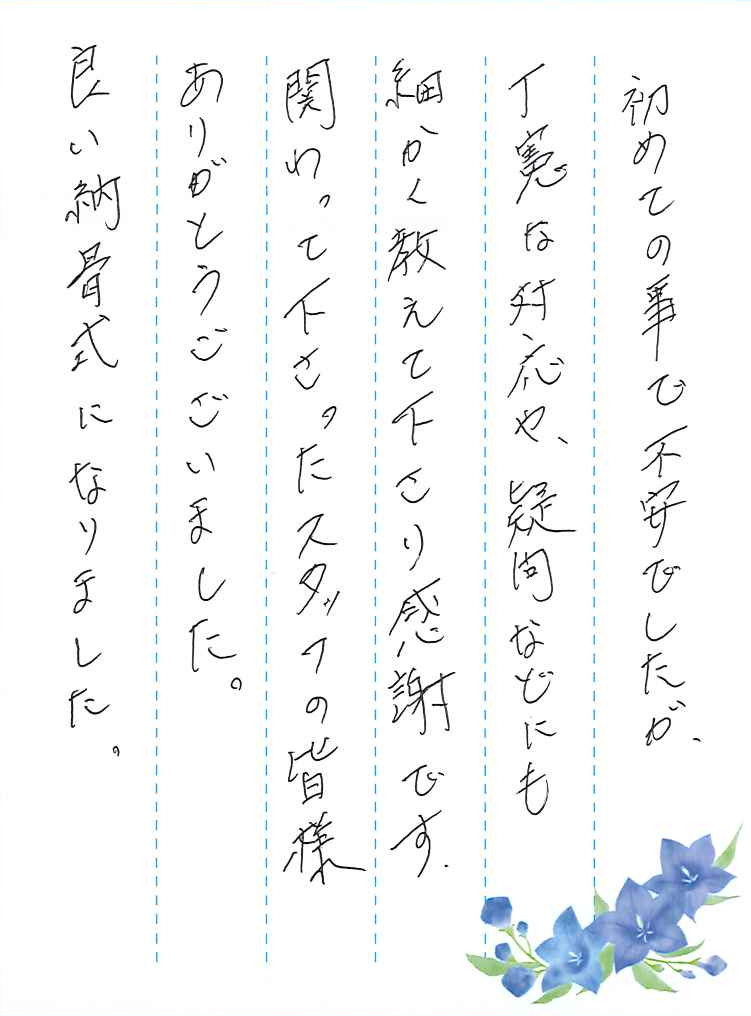 初めての事で不安でしたが、
丁寧な対応や、疑問などにも
細かく教えて下さり感謝です。
関わって下さったスタッフの皆様
ありがとうございました。
良い納骨式になりました。